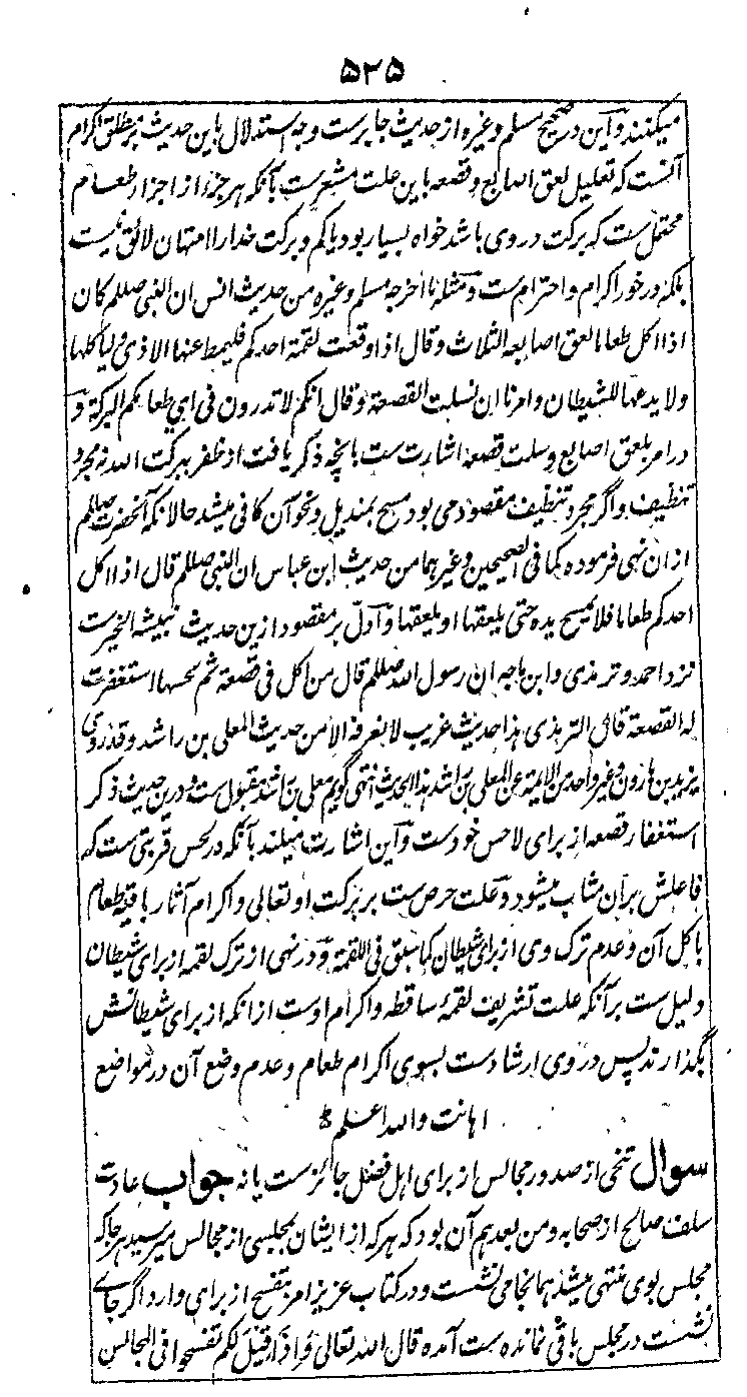 ۵۲۵
میکنند و این در صحیح مسلم وغیره از حدیث جابرست و جه استدلال باین حدیث بر مطلق اکرام
آنست که تعلیل لعق اصابع و قصعه باین علت مشعرست بآنکه هر جزء از اجزاء طعام
محتمل ست که برکت در وی باشد خواه بسیار بود یا کم و برکت خدا را امتهان لائق نیست
بلکه در خور اکرام و احترام ست و مثله ما اخرجه مسلم وغیره من حدیث انس ان النبی صللم کان
اذا اکل طعاما لعق اصابعه الثلاث و قال اذا وقعت لقمة احدکم فلیمط عنها الاذی و لیاکلها
ولا یدعها للشیطان وامرنا ان نسلت القصعة و قال انکم لا تدرون فی ای طعامکم البرکة و
در امر بلعق اصابع و سلت قصعه اشارت ست بانچه ذکر یافت از ظفر ببرکت الله نه مجرد
تنظیف و اگر مجرد تنظیف مقصود می بود مسح بمندیل و نحو آن کافی میشد حالانکه آنحضرت صللم
ازان نهی فرموده کما فی الصحیحین وغیرهما من حدیث ابن عباس ان النبی صللم قال اذا اکل
احدکم طعاما فلا یمسح یده حتی یلعقها او یلعقها و ادل بر مقصود ازین حدیث نبیشة الخیرست
نزد احمد و ترمذی و ابن ماجه ان رسول الله صللم قال من اکل فی قصعة ثم لحسها استغفرت
له القصعة قال الترمذی هذا حدیث غریب لا نعرفه الا من حدیث المعلی بن راشد و قد روی
یزید بن هارون وغیر واحد من الایمة عن المعلی بن راشد هذا الحدیث انتهی گویم معلی بن راشد مقبول ست و درین حدیث ذکر
استغفار قصعه از برای لاحس خودست و این اشارت میکند بآنکه در لحس قربتی ست که
فاعلش بران مثاب میشود و علت حرص ست بر برکت او تعالی و اکرام آثار باقیه طعام
باکل آن و عدم ترک وی از برای شیطان کما سبق فی اللقمة و در نهی از ترک لقمه از برای شیطان
دلیل ست بر آنکه علت تشریف لقمهٔ ساقطه و اکرام اوست ازانکه از برای شیطانش
بگذارند پس در وی ارشادست بسوی اکرام طعام و عدم وضع آن در مواضع
اهانت والله اعلم
سوال تنحی از صدور مجالس از برای اهل فضل جائزست یا نه جواب عادت
سلف صالح از صحابه ومن بعدهم آن بود که هر که از ایشان بمجلسی از مجالس میرسید هر جا که
مجلس بوی منتهی میشد همانجا می نشست و در کتاب عزیز امر بتفسح از برای وارد اگر جاے
نشست در مجلس باقی نمانده ست آمده قال الله تعالی و اذا قیل لکم تفسحوا فی المجالس